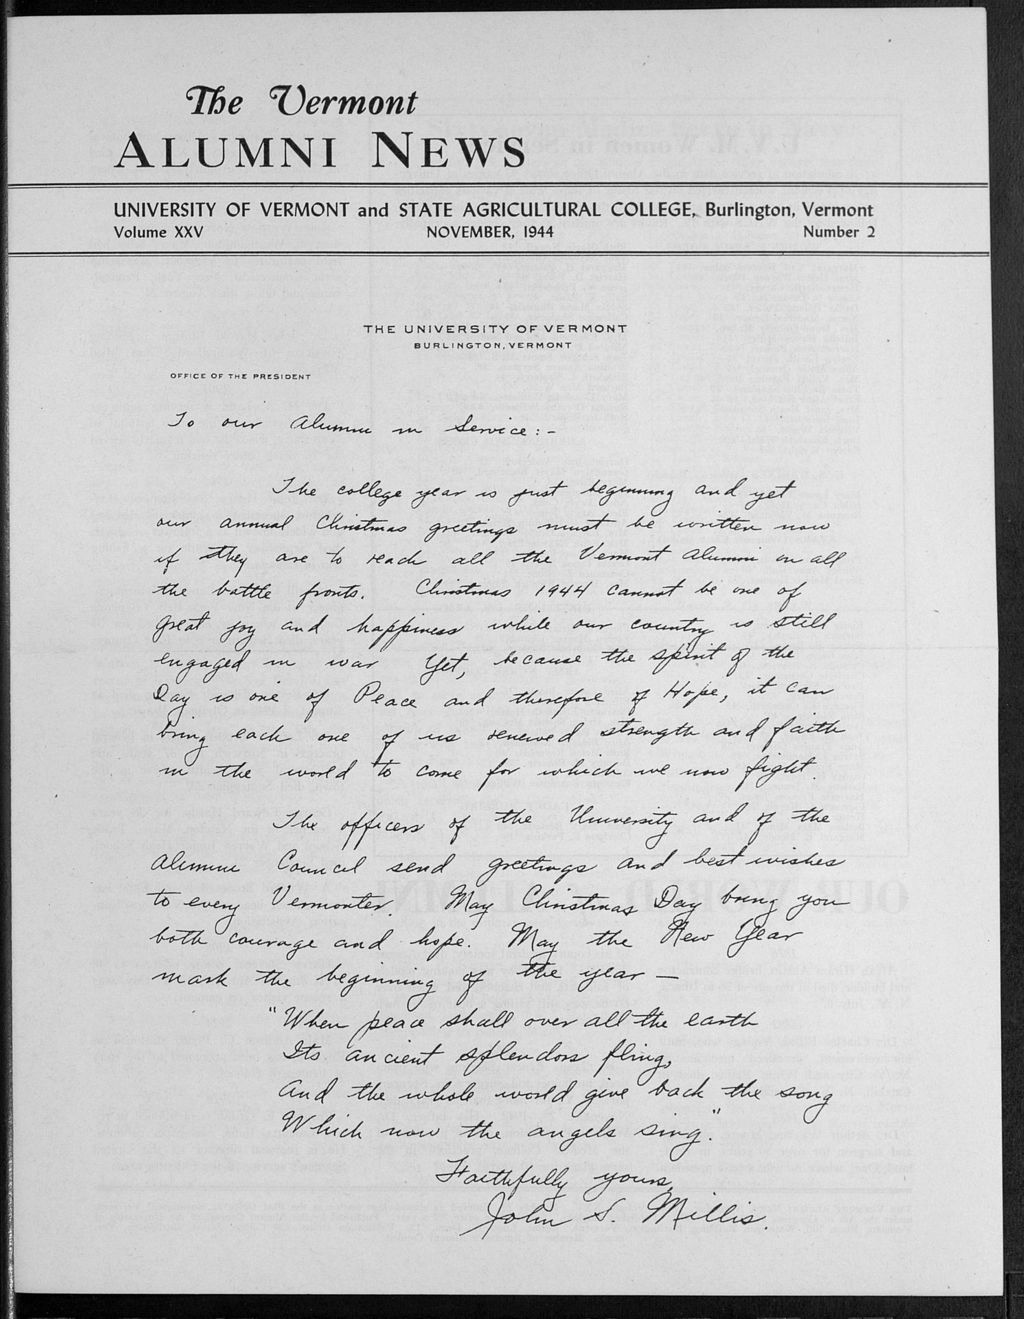 The Vermont
ALUMNI NEWS
UNIVERSITY OF VERMONT and STATE AGRICULTURAL COLLEGE, Burlington, Vermont
Volume XXV NOVEMBER, 1944 Number 2
THE UNIVERSITY OF VERMONT
BURLINGTON, VERMONT
OFFICE OF THE PRESIDENT
To our Alumni in Service:-
The college year is just beginning and yet
our annual Christmas greetings must be written now
if they are to reach all the Vermont Alumni on all
the battle fronts. Christmas 1944 cannot be one of
great joy and happiness while our country is still
engaged in war Yet, because the spirit of the
Day is one of Peace and therefore of Hope, it can
bring each one of us renewed strength and faith
in the world to come for which we now fight.
The officers of the University and of the
Alumni Council send greetings and best wishes
to every Vermonter. May Christmas Day bring you
both courage and hope. May the New Year
mark the beginning of the year —
"When peace shall over all the earth
Its ancient splendors fling,
And the whole world give back the song
Which now the angels sing."
Faithfully yours,
John S. Millis.